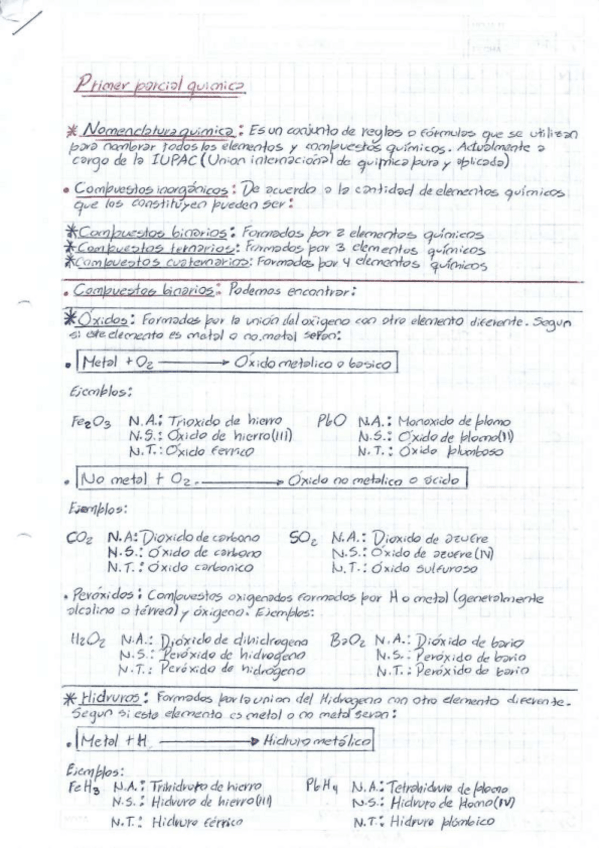 Primer parcial quimica
* Nomenclatura quimica: Es un conjunto de reglas o fórmulas que se utilizan
para nombrar todos los elementos y compuestos químicos. Actualmente a
cargo de la IUPAC (Union internacional de quimica pura y aplicada)
• Compuestos inorgánicos: De acuerdo a la cantidad de elementos químicos
que los constituyen pueden ser:
* Compuestos binarios: Formados por 2 elementos químicos
* Compuestos ternarios: Formados por 3 elementos químicos
* Compuestos cuaternarios: Formados por 4 elementos químicos
• Compuestos binarios: Podemos encontrar:
* Óxidos: Formados por la unión del oxigeno con otro elemento diferente. Segun
si este elemento es metal o no metal serán:
• Metal + O2 → Óxido metalico o basico
Ejemplos:
Fe2O3 N.A.: Trioxido de hierro PbO N.A.: Monoxido de plomo
N.S.: Óxido de hierro(III) N.S.: Óxido de plomo(II)
N.T.: Óxido ferrico N.T.: Óxido plumboso
• No metal + O2 → Óxido no metalico o ácido
Ejemplos:
CO2 N.A: Dioxido de carbono SO2 N.A.: Dioxido de azufre
N.S.: Óxido de carbono N.S.: Óxido de azufre(IV)
N.T.: Óxido carbonico N.T.: Óxido sulfuroso
• Peróxidos: Compuestos oxigenados formados por H o metal (generalmente
alcalino o térreo) y óxigeno. Ejemplos:
H2O2 N.A.: Dióxido de dihidrogeno BaO2 N.A.: Dióxido de bario
N.S.: Peróxido de hidrogeno N.S.: Peróxido de bario
N.T.: Peróxido de hidrógeno N.T.: Peróxido de bario
* Hidruros: Formados por la union del Hidrogeno con otro elemento diferente.
Segun si este elemento es metal o no metal seran:
• Metal + H → Hidruro metálico
Ejemplos:
FeH3 N.A.: Trihidruro de hierro PbH4 N.A.: Tetrahidruro de plomo
N.S.: Hidruro de hierro(III) N.S.: Hidruro de plomo(IV)
N.T.: Hidruro férrico N.T.: Hidruro plúmbico